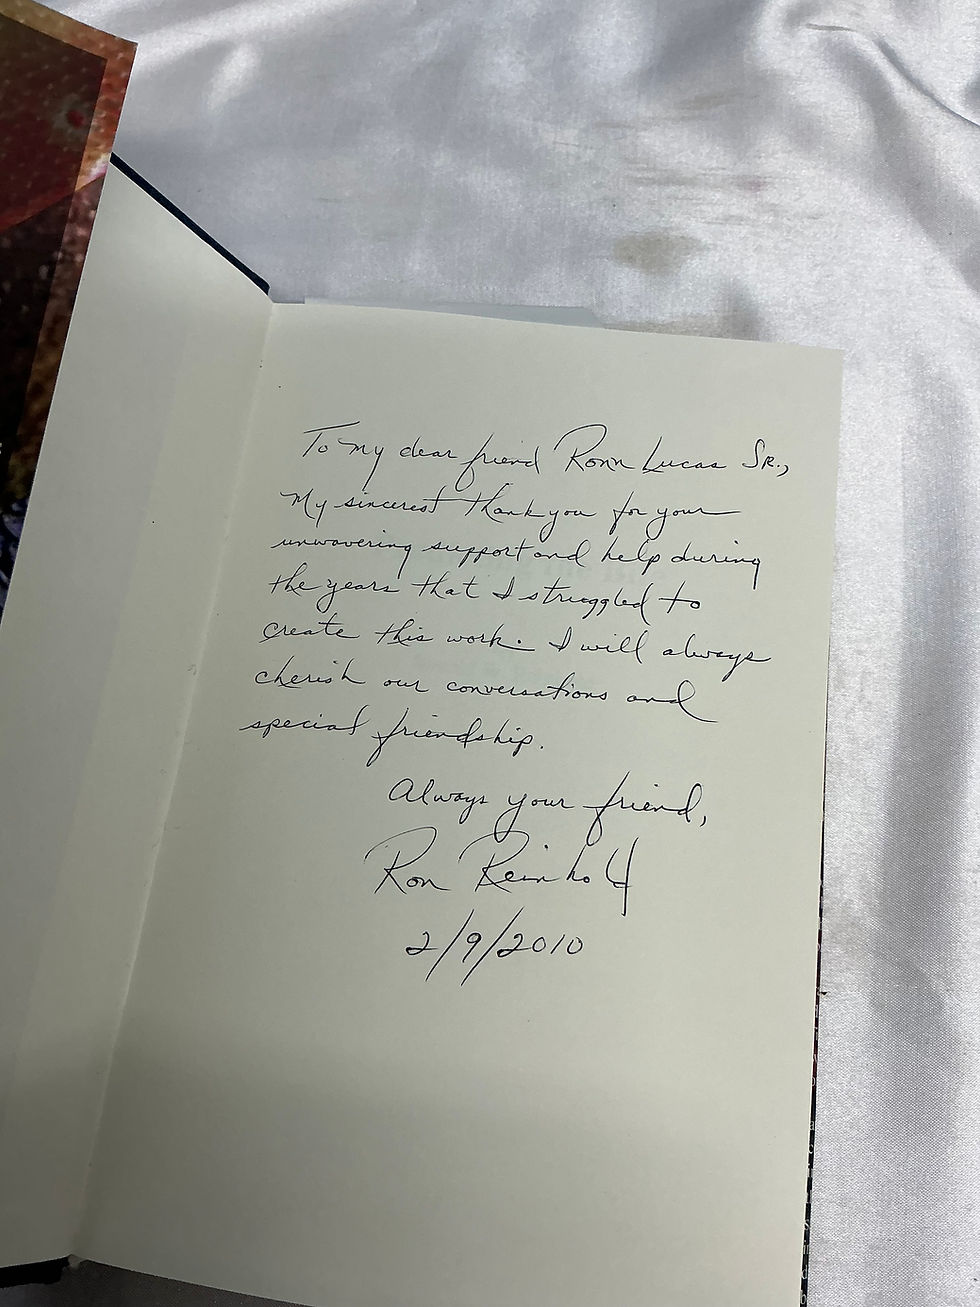 To my dear friend Ronn Lucas Sr.,
My sincerest thank you for your
unwavering support and help during
the years that I struggled to
create this work. I will always
cherish our conversations and
special friendship.
Always your friend,
Ron Reinhold
2/9/2010